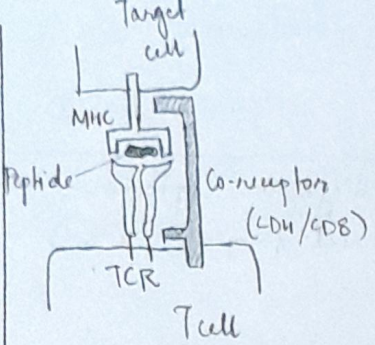 Target
cell
MHC
Peptide
Co-receptor
(CD4/CD8)
TCR
T cell